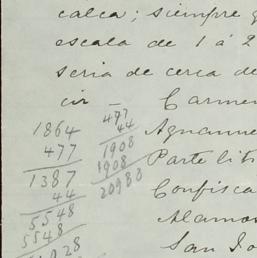 calca; siempre
escala de 1 á 2
seria de cerca de
cir — Carmen
Aguanue
Parte lib
Confisca
Alamo
San Jo
1864
477
1387
44
5548
5548
477
44
1908
1908
20988